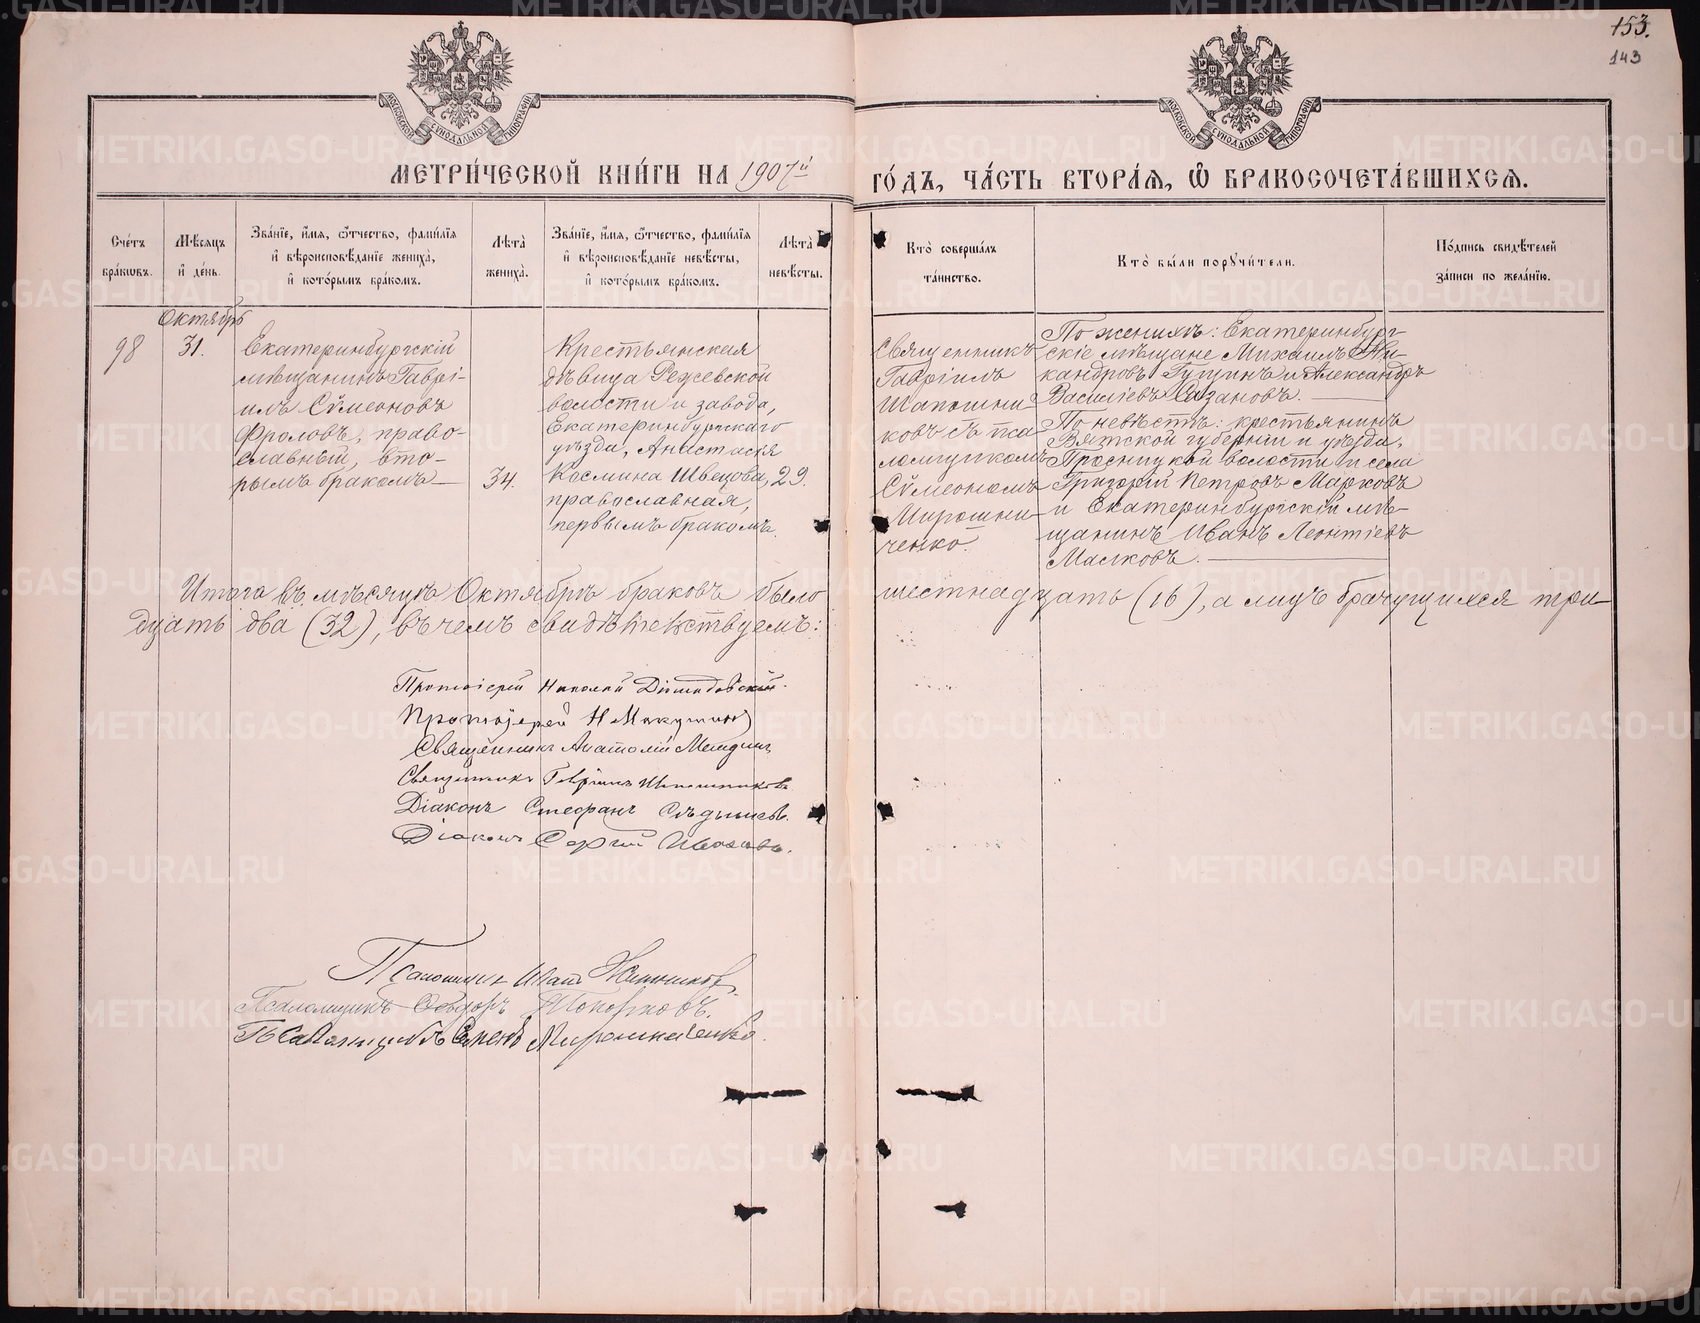 153.
143
МОСКОВСКОЙ СѴНОДАЛЬНОЙ ТИПОГРАФІИ
МОСКОВСКОЙ СѴНОДАЛЬНОЙ ТИПОГРАФІИ
МЕТРИ́ЧЕСКОЙ КНИ́ГИ НА 1907й ГО́ДЪ, ЧА́СТЬ ВТОРА́Я, Ѡ БРАКОСОЧЕТА́ВШИХСЯ.
Сче́тъ
бра́ковъ.
Мѣ́сяцъ
и҆ де́нь.
Зва́нїе, и҆́мя, ѻ҆́тчество, фами́лїя
и҆ вѣроисповѣ́данїе жениха̀,
и҆ кото́рымъ бра́комъ.
Лѣ̑та
жениха̀.
Зва́нїе, и҆́мя, ѻ҆́тчество, фами́лїя
и҆ вѣроисповѣ́данїе невѣ́сты,
и҆ кото́рымъ бра́комъ.
Лѣ̑та
невѣ́сты.
Кто̀ соверша́лъ
та́инство.
Кто̀ бы́ли порꙋчи́тели.
По́дпись свидѣ́телей
за́писи по жела́нїю.
98
Октябрь
31.
Екатеринбургскій
мѣщанинъ Гаврі-
илъ Сѵмеоновъ
Фроловъ, право-
славный, вто-
рымъ бракомъ
34.
Крестьянская
дѣвица Режевской
волости и завода,
Екатеринбургскаго
уѣзда, Анастасія
Космина Швецова,
православная,
первымъ бракомъ.
29.
Священникъ
Гавріилъ
Шапошни-
ковъ съ пса-
ломщикомъ
Сѵмеономъ
Мирошни-
ченко.
По женихѣ: Екатеринбург-
скіе мѣщане Михаилъ Ни-
кандровъ Гущинъ и Александръ
Василіевъ Сазановъ.
По невѣстѣ: крестьянинъ
Вятской губерніи и уѣзда,
Просницкой волости и села
Григорій Петровъ Марковъ
и Екатеринбургскій мѣ-
щанинъ Иванъ Леонтіевъ
Малковъ.
Итого въ мѣсяцѣ Октябрѣ браковъ было шестнадцать (16), а лицъ брачущихся три-
дцать два (32), въ чемъ свидѣтельствуемъ:
Протоіерей Николай
Протоіерей Н
Священникъ Анатолій
Священникъ Гавріилъ Шапошниковъ
Діаконъ Стефанъ
Діаконъ Сергій
Псаломщикъ Иванъ
Псаломщикъ Ѳеодоръ Токоряковъ.
Псаломщикъ Симеонъ Мирошниченко.
METRIKI.GASO-URAL.RU